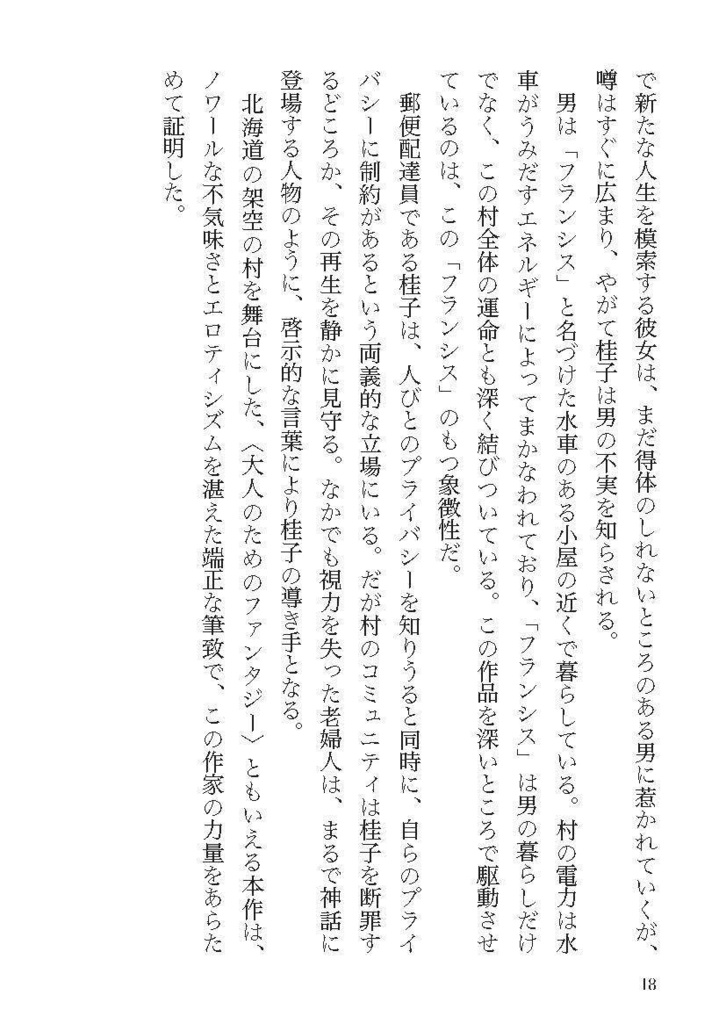 で新たな人生を模索する彼女は、まだ得体のしれないところのある男に惹かれていくが、
噂はすぐに広まり、やがて桂子は男の不実を知らされる。
男は「フランシス」と名づけた水車のある小屋の近くで暮らしている。村の電力は水
車がうみだすエネルギーによってまかなわれており、「フランシス」は男の暮らしだけ
でなく、この村全体の運命とも深く結びついている。この作品を深いところで駆動させ
ているのは、この「フランシス」のもつ象徴性だ。
郵便配達員である桂子は、人びとのプライバシーを知りうると同時に、自らのプライ
バシーに制約があるという両義的な立場にいる。だが村のコミュニティは桂子を断罪す
るどころか、その再生を静かに見守る。なかでも視力を失った老婦人は、まるで神話に
登場する人物のように、啓示的な言葉により桂子の導き手となる。
北海道の架空の村を舞台にした、〈大人のためのファンタジー〉ともいえる本作は、
ノワールな不気味さとエロティシズムを湛えた端正な筆致で、この作家の力量をあらた
めて証明した。
18